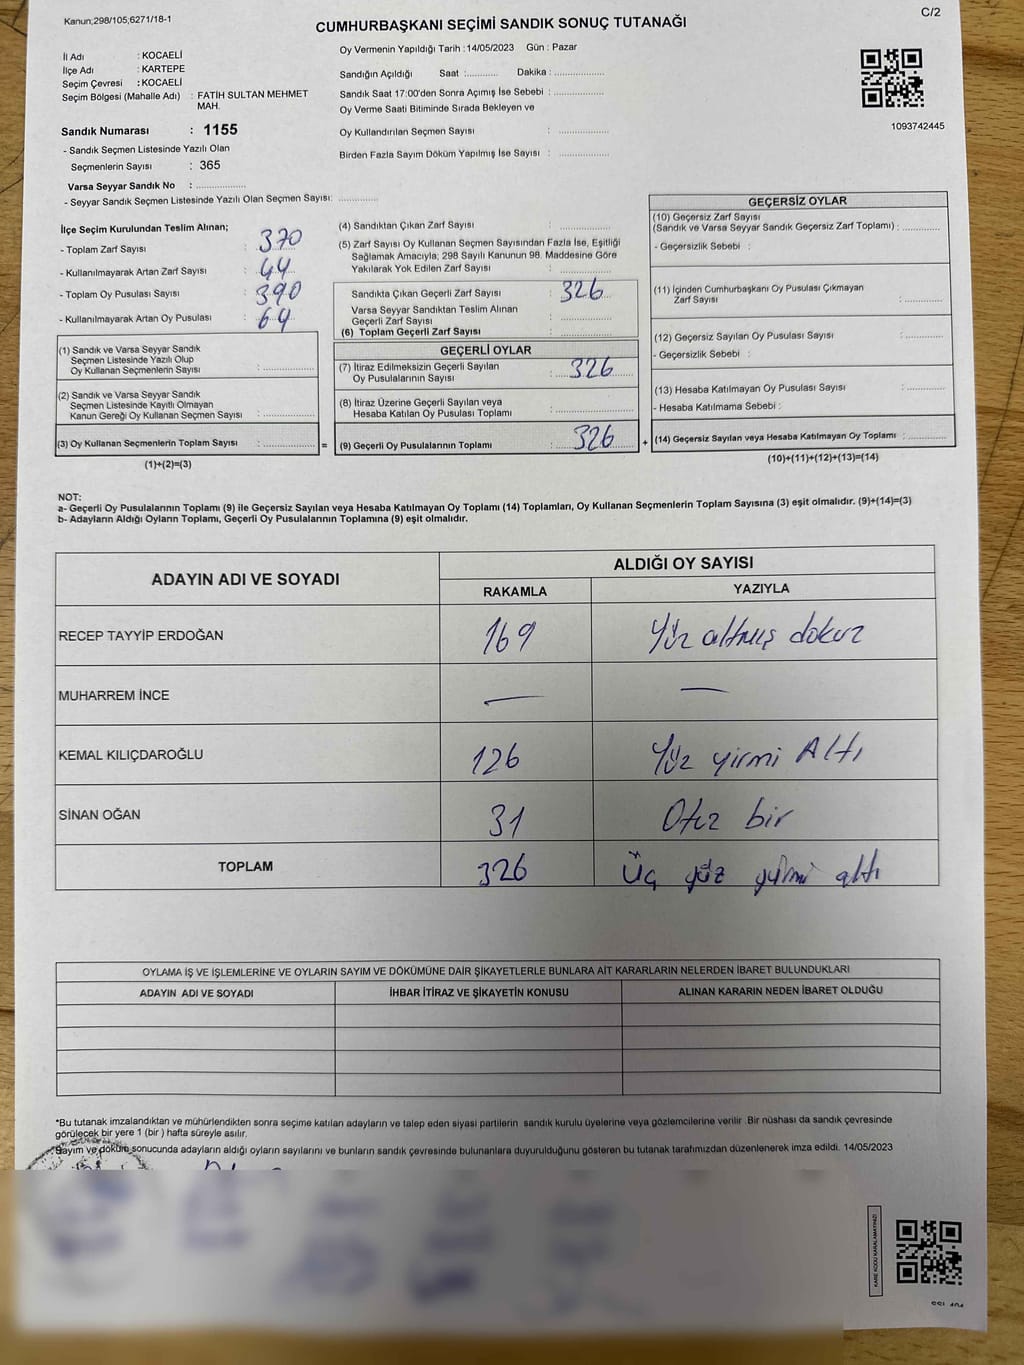 Kanun;298/105;6271/18-1
C/2
CUMHURBAŞKANI SEÇİMİ SANDIK SONUÇ TUTANAĞI
İl Adı : KOCAELİ
İlçe Adı : KARTEPE
Seçim Çevresi : KOCAELİ
Seçim Bölgesi (Mahalle Adı) : FATİH SULTAN MEHMET
MAH.
Sandık Numarası : 1155
- Sandık Seçmen Listesinde Yazılı Olan
Seçmenlerin Sayısı : 365
Varsa Seyyar Sandık No : ..................
- Seyyar Sandık Seçmen Listesinde Yazılı Olan Seçmen Sayısı: ..............
Oy Vermenin Yapıldığı Tarih : 14/05/2023 Gün : Pazar
Sandığın Açıldığı Saat :........... Dakika : ..................
Sandık Saat 17:00'den Sonra Açımış İse Sebebi : ..................
Oy Verme Saati Bitiminde Sırada Bekleyen ve
Oy Kullandırılan Seçmen Sayısı : ..................
Birden Fazla Sayım Döküm Yapılmış İse Sayısı : ..................
1093742445
İlçe Seçim Kurulundan Teslim Alınan;
- Toplam Zarf Sayısı : 370
- Kullanılmayarak Artan Zarf Sayısı : 44
- Toplam Oy Pusulası Sayısı : 390
- Kullanılmayarak Artan Oy Pusulası : 64
(1) Sandık ve Varsa Seyyar Sandık
Seçmen Listesinde Yazılı Olup
Oy Kullanan Seçmenlerin Sayısı : ..................
(2) Sandık ve Varsa Seyyar Sandık
Seçmen Listesinde Kayıtlı Olmayan
Kanun Gereği Oy Kullanan Seçmen Sayısı : ..................
(3) Oy Kullanan Seçmenlerin Toplam Sayısı : .................. =
(1)+(2)=(3)
(4) Sandıktan Çıkan Zarf Sayısı : ..................
(5) Zarf Sayısı Oy Kullanan Seçmen Sayısından Fazla İse, Eşitliği
Sağlamak Amacıyla; 298 Sayılı Kanunun 98. Maddesine Göre
Yakılarak Yok Edilen Zarf Sayısı : ..................
Sandıkta Çıkan Geçerli Zarf Sayısı : 326
Varsa Seyyar Sandıktan Teslim Alınan
Geçerli Zarf Sayısı : ..................
(6) Toplam Geçerli Zarf Sayısı : ..................
GEÇERLİ OYLAR
(7) İtiraz Edilmeksizin Geçerli Sayılan
Oy Pusulalarının Sayısı : 326
(8) İtiraz Üzerine Geçerli Sayılan veya
Hesaba Katılan Oy Pusulası Toplamı : ..................
(9) Geçerli Oy Pusulalarının Toplamı : 326 +
GEÇERSİZ OYLAR
(10) Geçersiz Zarf Sayısı
(Sandık ve Varsa Seyyar Sandık Geçersiz Zarf Toplamı) : ..............
- Geçersizlik Sebebi :
(11) İçinden Cumhurbaşkanı Oy Pusulası Çıkmayan
Zarf Sayısı : ..............
(12) Geçersiz Sayılan Oy Pusulası Sayısı : ..............
- Geçersizlik Sebebi :
(13) Hesaba Katılmayan Oy Pusulası Sayısı : ..............
- Hesaba Katılmama Sebebi :
(14) Geçersiz Sayılan veya Hesaba Katılmayan Oy Toplamı : ..............
(10)+(11)+(12)+(13)=(14)
NOT:
a- Geçerli Oy Pusulalarının Toplamı (9) ile Geçersiz Sayılan veya Hesaba Katılmayan Oy Toplamı (14) Toplamları, Oy Kullanan Seçmenlerin Toplam Sayısına (3) eşit olmalıdır. (9)+(14)=(3)
b- Adayların Aldığı Oyların Toplamı, Geçerli Oy Pusulalarının Toplamına (9) eşit olmalıdır.
ADAYIN ADI VE SOYADI
ALDIĞI OY SAYISI
RAKAMLA YAZIYLA
RECEP TAYYİP ERDOĞAN 169 Yüz altmış dokuz
MUHARREM İNCE — —
KEMAL KILIÇDAROĞLU 126 Yüz yirmi Altı
SİNAN OĞAN 31 Otuz bir
TOPLAM 326 Üç yüz yirmi altı
OYLAMA İŞ VE İŞLEMLERİNE VE OYLARIN SAYIM VE DÖKÜMÜNE DAİR ŞİKAYETLERLE BUNLARA AİT KARARLARIN NELERDEN İBARET BULUNDUKLARI
ADAYIN ADI VE SOYADI İHBAR İTİRAZ VE ŞİKAYETİN KONUSU ALINAN KARARIN NEDEN İBARET OLDUĞU
*Bu tutanak imzalandıktan ve mühürlendikten sonra seçime katılan adayların ve talep eden siyasi partilerin sandık kurulu üyelerine veya gözlemcilerine verilir. Bir nüshası da sandık çevresinde
görülecek bir yere 1 (bir ) hafta süreyle asılır.
Sayım ve döküm sonucunda adayların aldığı oyların sayılarını ve bunların sandık çevresinde bulunanlara duyurulduğunu gösteren bu tutanak tarafımızdan düzenlenerek imza edildi. 14/05/2023
KARE KODU KARALAMAYINIZ!